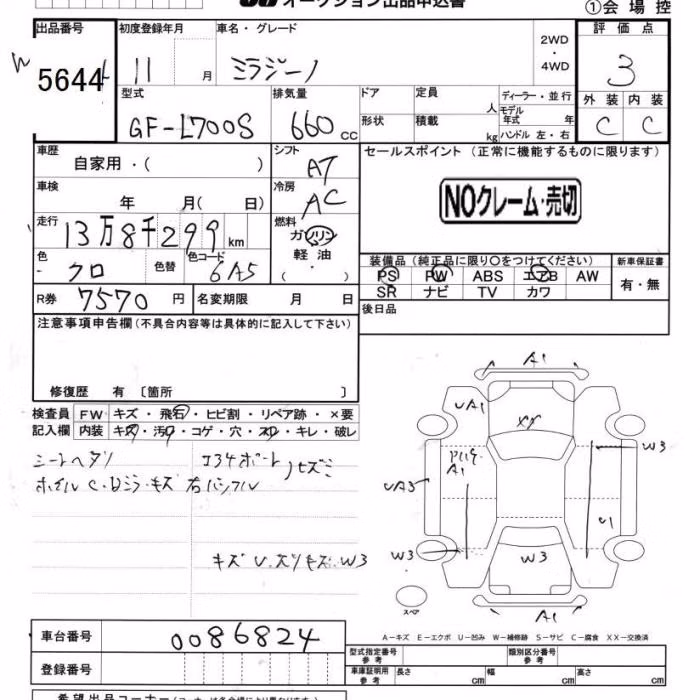 オークション出品申込書
①会場控
出品番号 初度登録年月 車名・グレード 2WD・4WD 評価点
5644 11 月 ミラジーノ 3
型式 排気量 ドア 定員 人 ディーラー・並行 外装 内装
GF-L700S 660 cc 形状 積載 kg モデル年式 年 ハンドル 左・右 C C
車歴 自家用・( ) シフト AT セールスポイント (正常に機能するものに限ります)
車検 年 月( 日) 冷房 AC NOクレーム・売切
走行 13万8千299 km 燃料 ガソリン・軽油・( )
色 クロ 色替 色コード 6A5 装備品 (純正品に限り〇をつけてください) 新車保証書
PS PW ABS エアB AW 有・無
SR ナビ TV カワ
R券 7570 円 名変期限 月 日 後日品
注意事項申告欄 (不具合内容等は具体的に記入して下さい)
修復歴 有 〔箇所 〕
検査員 FW キズ・飛石・ヒビ割・リペア跡・×要
記入欄 内装 キズ・汚れ・コゲ・穴・スレ・キレ・破レ
シートヘタリ
キズ U W3
A1
UA1
XX
W3
A1
UA3
U1
W3
W3
スペア
A1
A-キズ E-エクボ U-凹み W-補修跡 S-サビ C-腐食 XX-交換済
車台番号 0086824
型式指定番号 参考 類別区分番号 参考
登録番号
車庫証明用 参考 長さ cm 幅 cm 高さ cm
希望出品コーナー